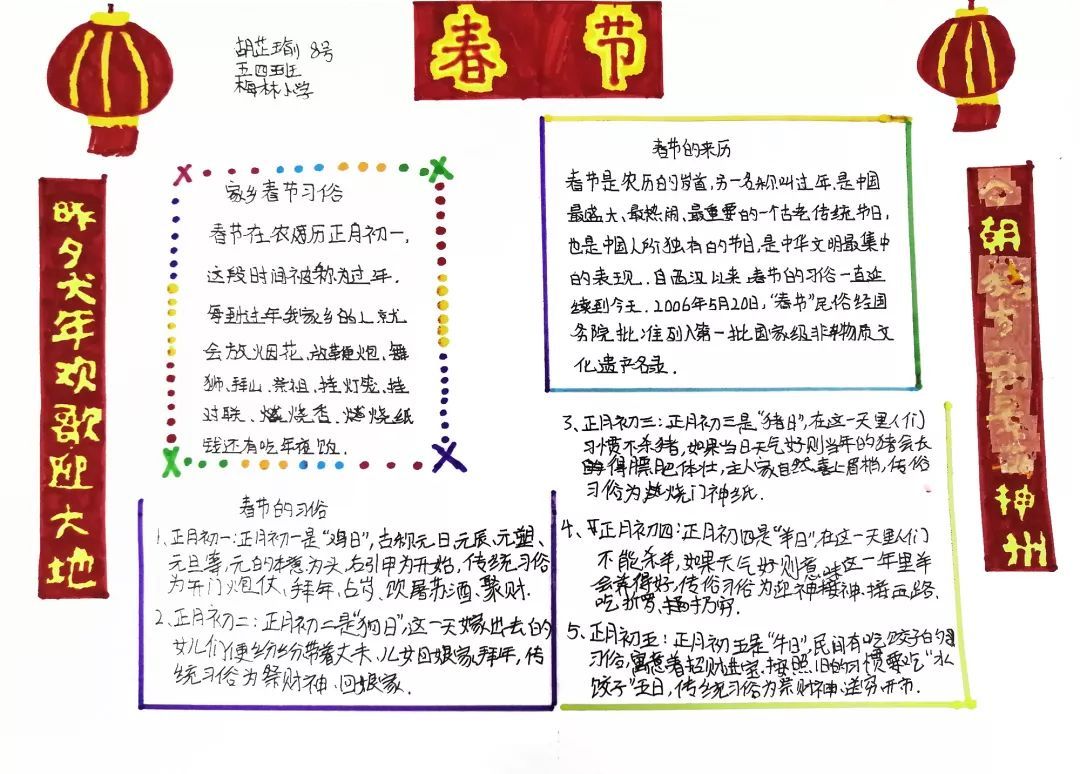 春节
胡芷瑜 8号
五四班
梅林小学
昨夕犬年欢歌迎大地
家乡春节习俗
春节在农历正月初一,
这段时间被称为过年.
每到过年我家乡的人就
会放烟花、放鞭炮、舞
狮、拜山、祭祖、挂灯笼、挂
对联、燃烧香、燃烧纸
钱还有吃年夜饭.
春节的来历
春节是农历的岁首,另一名称叫过年,是中国
最盛大、最热闹、最重要的一个古老传统节日,
也是中国人所独有的节日,是中华文明最集中
的表现.自西汉以来,春节的习俗一直延
续到今天.2006年5月20日,"春节"民俗经国
务院批准列入第一批国家级非物质文
化遗产名录.
春节的习俗
1、正月初一:正月初一是"鸡日",古称元日、元辰、元朔、
元旦等,元的本意为头,右引申为开始,传统习俗
为开门炮仗、拜年、占岁、饮屠苏酒、聚财.
2、正月初二:正月初二是"狗日",这一天嫁出去的
女儿们便纷纷带着丈夫、儿女回娘家拜年,传
统习俗为祭财神、回娘家.
3、正月初三:正月初三是"猪日",在这一天里人们
习惯不杀猪,如果当日天气好则当年的猪会长
得膘肥体壮,主人家自然喜上眉梢,传俗
习俗为燃烧门神纸.
4、正月初四:正月初四是"羊日",在这一天里人们
不能杀羊,如果天气好则意味这一年里羊
会养得好,传俗习俗为迎神接神、接五路、
吃折罗、扔穷.
5、正月初五:正月初五是"牛日",民间有吃饺子的
习俗,寓意着招财进宝.按照旧的习惯要吃"水
饺子"五日,传统习俗为祭财神、送穷、开市.
今朝
神州